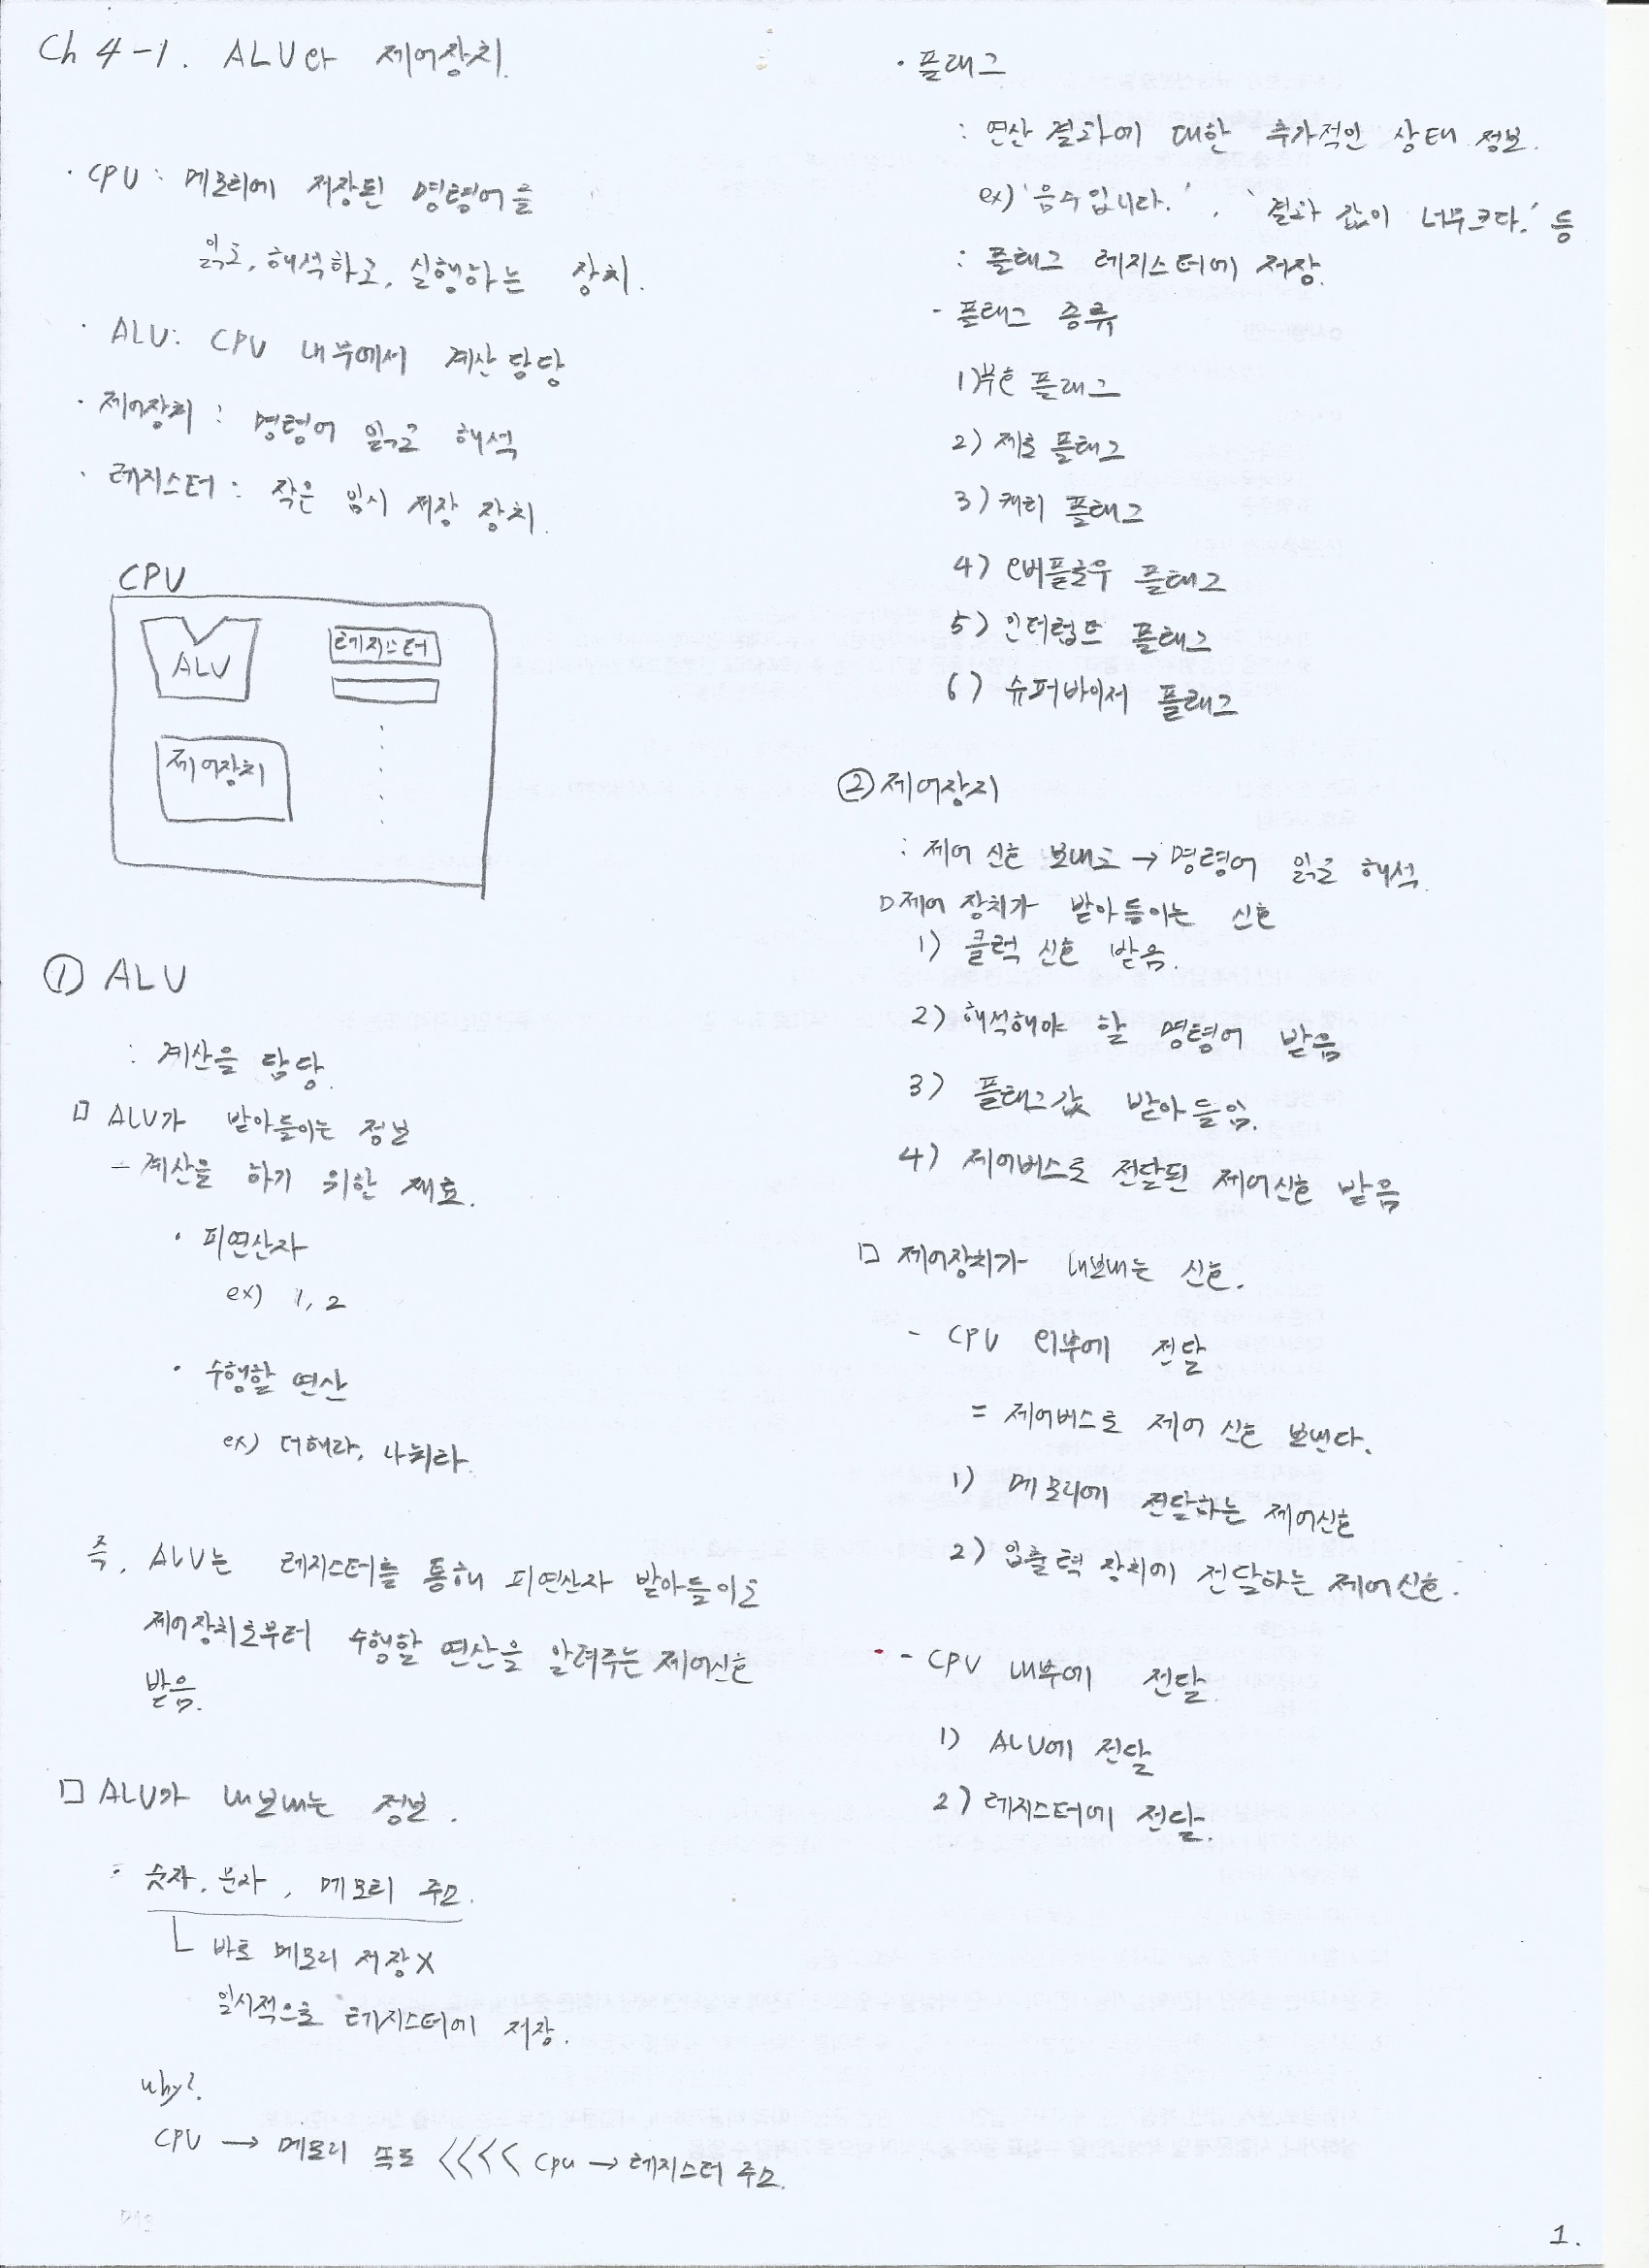 Ch 4-1. ALU와 제어장치.
· CPU : 메모리에 저장된 명령어를
읽고, 해석하고, 실행하는 장치.
· ALU: CPU 내부에서 계산 담당
· 제어장치 : 명령어 읽고 해석
· 레지스터 : 작은 임시 저장 장치.
CPU
ALU
레지스터
제어장치
① ALU
: 계산을 담당.
□ ALU가 받아들이는 정보
- 계산을 하기 위한 재료.
· 피연산자
ex) 1, 2
· 수행할 연산
ex) 더해라, 나눠라.
즉, ALU는 레지스터를 통해 피연산자 받아들이고
제어장치로부터 수행할 연산을 알려주는 제어신호
받음.
□ ALU가 내보내는 정보.
: 숫자, 문자, 메모리 주소.
└ 바로 메모리 저장 X
일시적으로 레지스터에 저장.
why?.
CPU → 메모리 속도 <<<< cpu → 레지스터 주소.
· 플래그
: 연산 결과에 대한 추가적인 상태 정보.
ex) '음수입니다.', '결과 값이 너무크다.' 등
: 플래그 레지스터에 저장.
- 플래그 종류
1) 부호 플래그
2) 제로 플래그
3) 캐리 플래그
4) 오버플로우 플래그
5) 인터럽트 플래그
6) 슈퍼바이저 플래그
② 제어장치
: 제어 신호 보내고 → 명령어 읽고 해석.
□ 제어 장치가 받아들이는 신호
1) 클럭 신호 받음.
2) 해석해야 할 명령어 받음
3) 플래그값 받아들임.
4) 제어버스로 전달된 제어신호 받음
□ 제어장치가 내보내는 신호.
- CPU 외부에 전달
= 제어버스로 제어 신호 보낸다.
1) 메모리에 전달하는 제어신호
2) 입출력 장치에 전달하는 제어신호.
- CPU 내부에 전달.
1) ALU에 전달
2) 레지스터에 전달.
1.